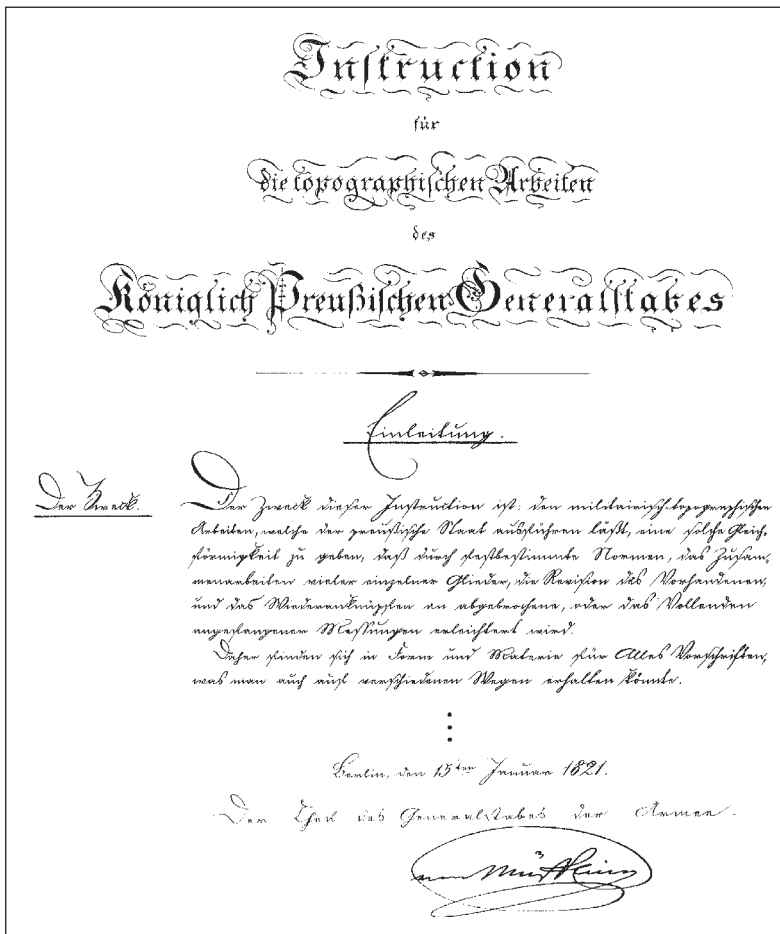 Instruction
für
die topographischen Arbeiten
des
Königlich Preußischen Generalstabes
Einleitung.
Der Zweck.
Der Zweck dieser Instruction ist: den militairisch-topographischen
Arbeiten, welche der preußische Staat ausführen läßt, eine solche Gleich-
förmigkeit zu geben, daß durch festbestimmte Normen, das Zusam-
menarbeiten vieler einzelner Glieder, die Revision des Vorhandenen,
und das Wiederanknüpfen an abgebrochene, oder das Vollenden
angefangener Messungen erleichtert wird.
Daher finden sich in Form und Materie für Alles Vorschriften,
was man auch auf verschiedenen Wegen erhalten könnte.
Berlin, den 15ten Januar 1821.
Der Chef des Generalstabes der Armee.
von Müffling